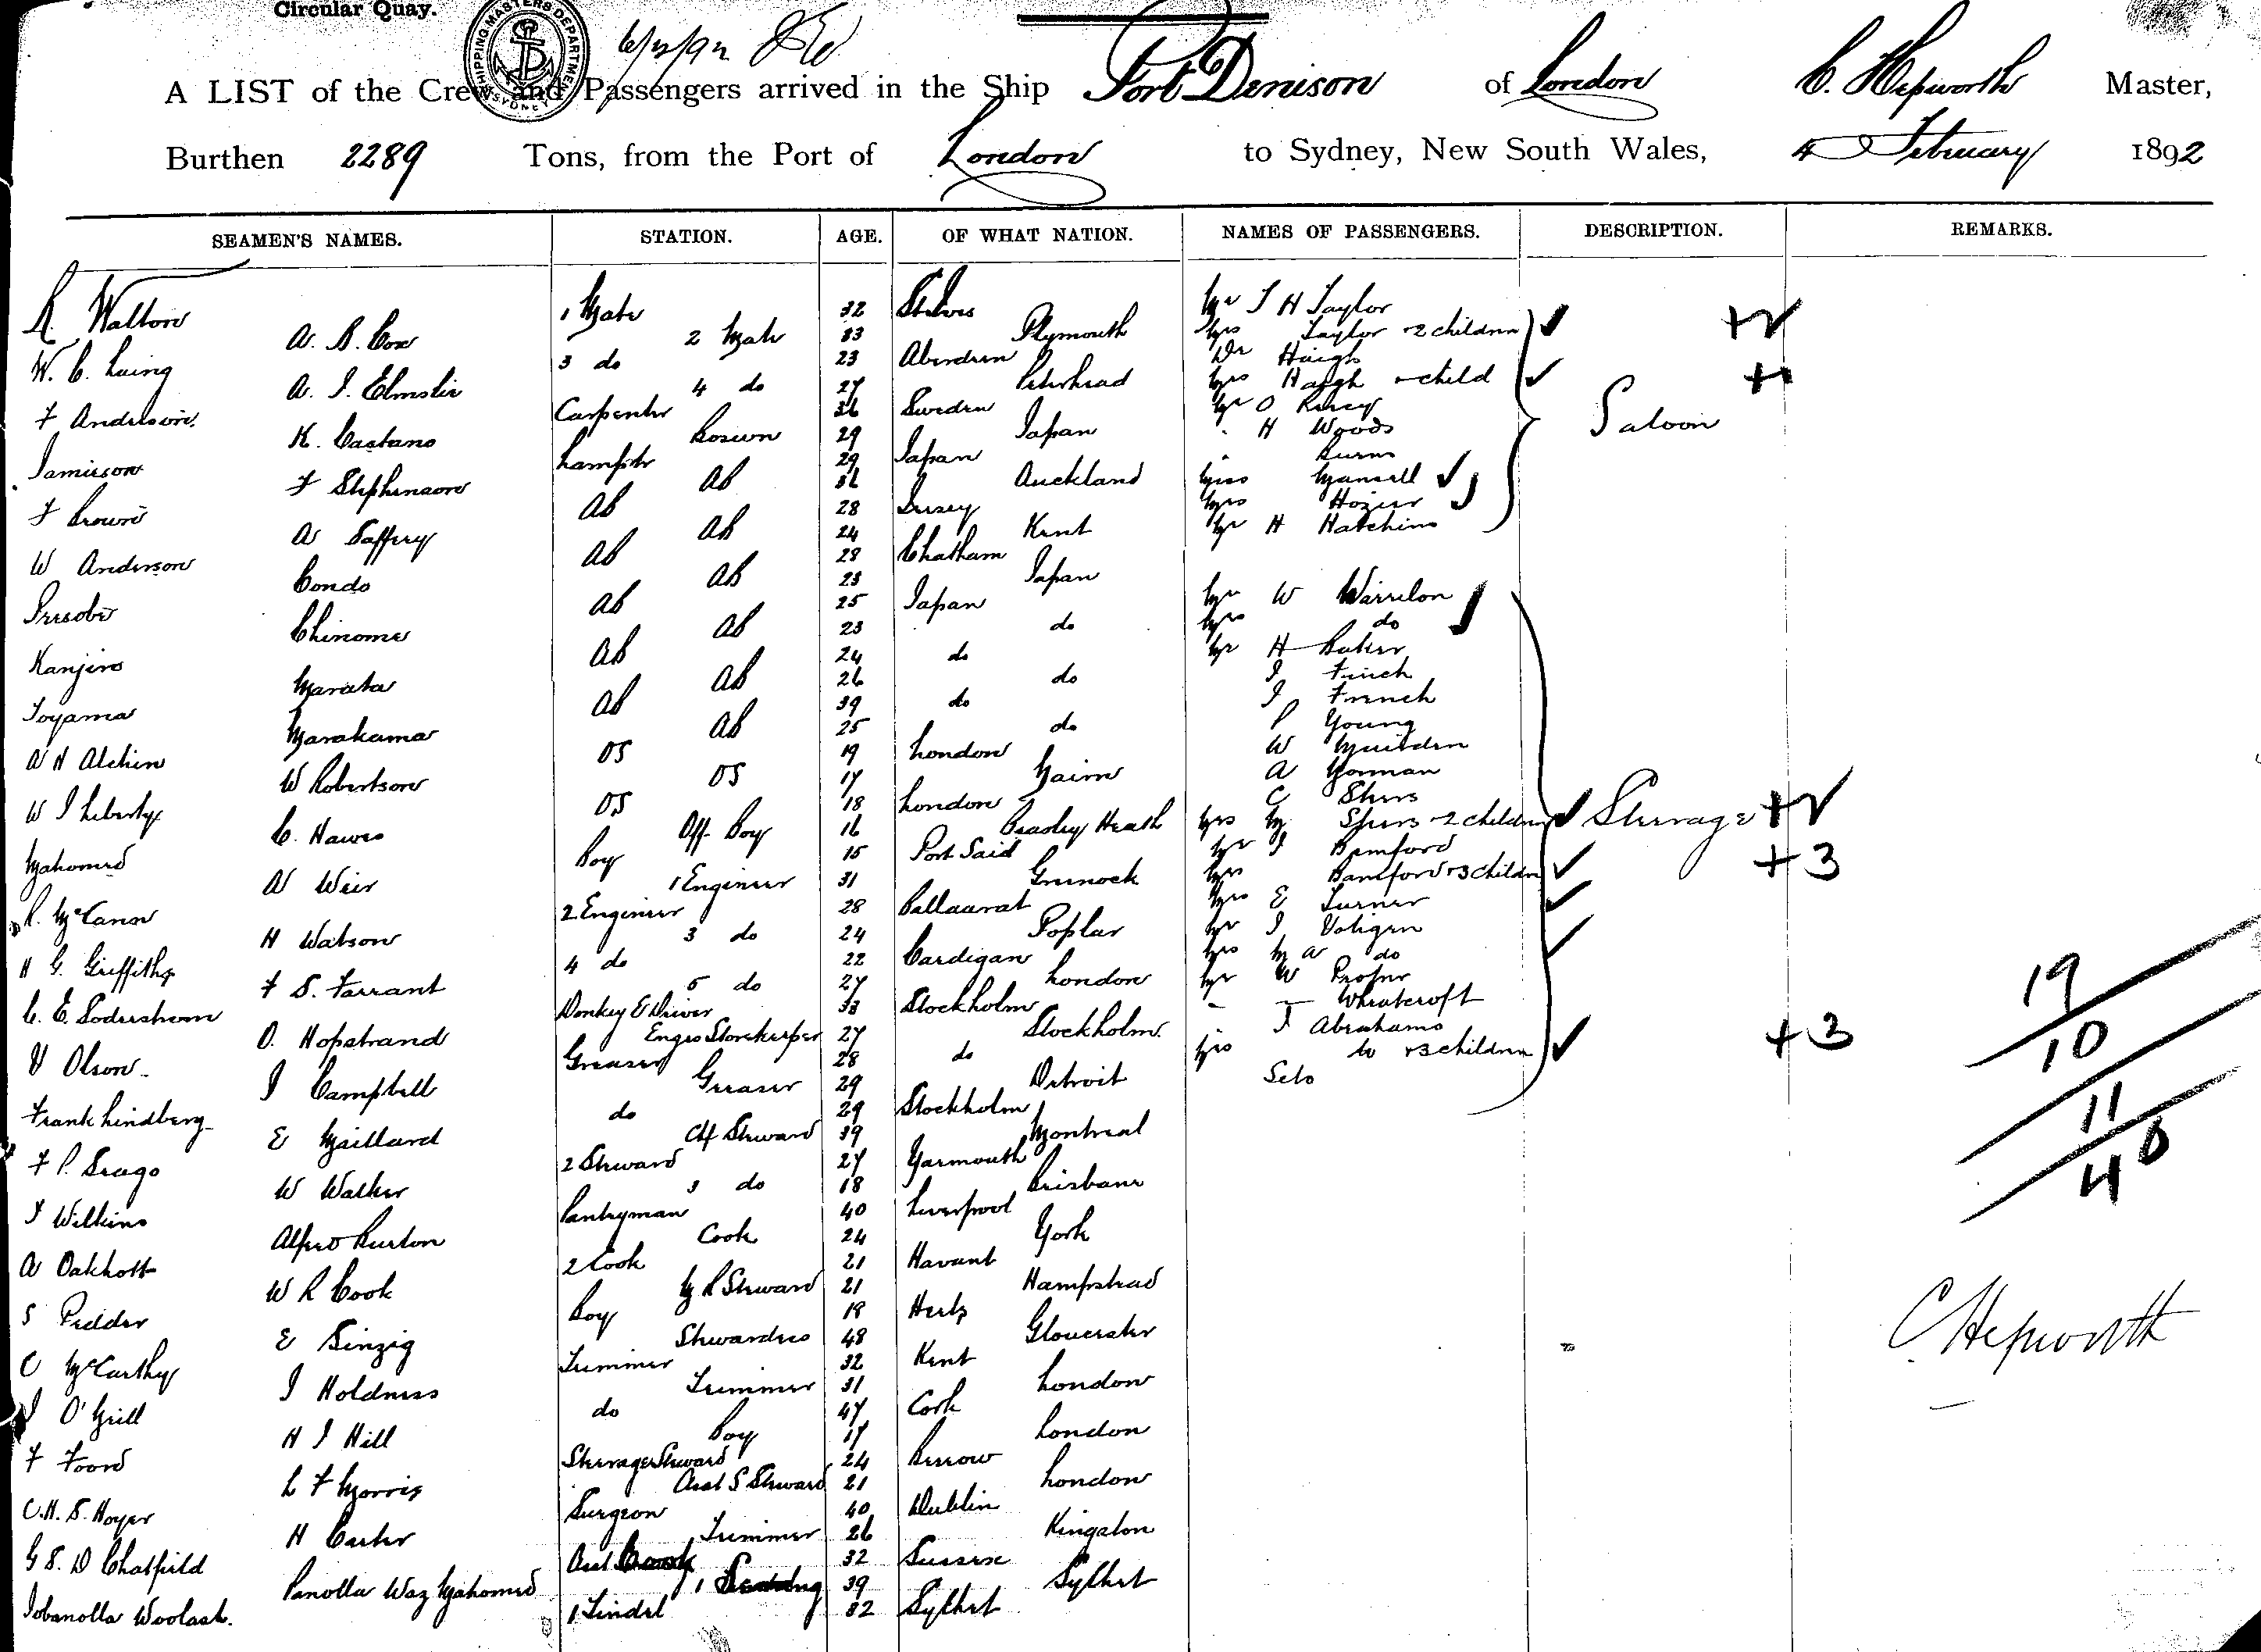 Circular Quay.
SHIPPING MASTERS DEPARTMENT SYDNEY
A LIST of the Crew and Passengers arrived in the Ship Port Denison of London C. Hepworth Master,
Burthen 2289 Tons, from the Port of London to Sydney, New South Wales, 4 February 1892
SEAMEN'S NAMES. STATION. AGE. OF WHAT NATION. NAMES OF PASSENGERS. DESCRIPTION. REMARKS.
R. Walton 1 Mate 32 Mr J H Taylor
A. B. Cox 2 Mate 33 Plymouth Mrs Taylor 2 children
W. C. Laing 3 do 23 Aberdeen Dr Haigh
A. J. Elmslie 4 do 27 Peterhead Mrs Haigh + child
F Anderson Carpenter 36 Sweden Mr O Percy
K. Castano Bosun 29 Japan " H Woods Saloon
Jamieson Lamptr 29 Japan " Burns
F Stephenson AB Auckland Miss Mansell
F Brown AB 28 Jersey Mrs Hozier
A Saffery AB 24 Kent Mr H Hatchins
W Anderson AB 28 Chatham
Condo AB 23 Japan Mr W Warrelon
AB 25 Japan Mrs do
Chinome AB 23 do Mr H Baker
Kanjiro AB 24 do J Finch
Marata AB 26 do J French
Toyama AB 39 do P Young
Marakama AB 25 do W
A H Alchin OS 19 London A Gorman
W Robertson OS 17 Nairn C Spurs
W J Liberty OS 18 London Mrs M. Spurs 2 children Steerage
C. Hawes Off. Boy 16 Bexley Heath Mr J Bamford
Mahomed Boy 15 Port Said Mrs Bamford + 3 childn + 3
A Weir 1 Engineer 31 Greenock Mrs E Turner
R. McCann 2 Engineer 28 Ballaarat Mr J
H Watson 3 do 24 Poplar Mrs M A do
H G. Griffiths 4 do 22 Cardigan Mr W
F S. Farrant 5 do 27 London Wheatcroft
C. E. Sodersheom Donkey E Driver 33 Stockholm J Abrahams
O. Hopstrand Engrs Storekeeper 27 Stockholm. Mrs do + 3 children + 3
V Olson Greaser 28 do Seto
J Campbell Greaser 29 Detroit
Frank Lindberg do 29 Stockholm
E Maillard Chf Steward 39 Montreal
F P. Seago 2 Steward 27 Yarmouth
W Walker 3 do 18 Brisbane
J Wilkins Pantryman 40 Liverpool
Alfred Burton Cook 24 York
A Oakhott 2 Cook 21 Havant
W R Cook M R Steward 21 Hampstead
S Pedder Boy 19 Herts
E Sinzig Stewardess 48 Gloucester
C McCarthy Trimmer 32 Kent
J Holdness Trimmer 31 London
J O'Neill do 47 Cork
H J Hill Boy 17 London
F Foord Steerage Steward 24 Berrow
L F Morris Asst S Steward 21 London
C. H. S. Hoyer Surgeon 40 Dublin
H Carter Trimmer 26 Kingston
G S. D Chatfield Asst 32 Sussex
Panolla Waz Mahomed 1 39 Sylhet
Jobanolla Woolash. 1 Tindel 32 Sylhet
19
10
11
40
C Hepworth